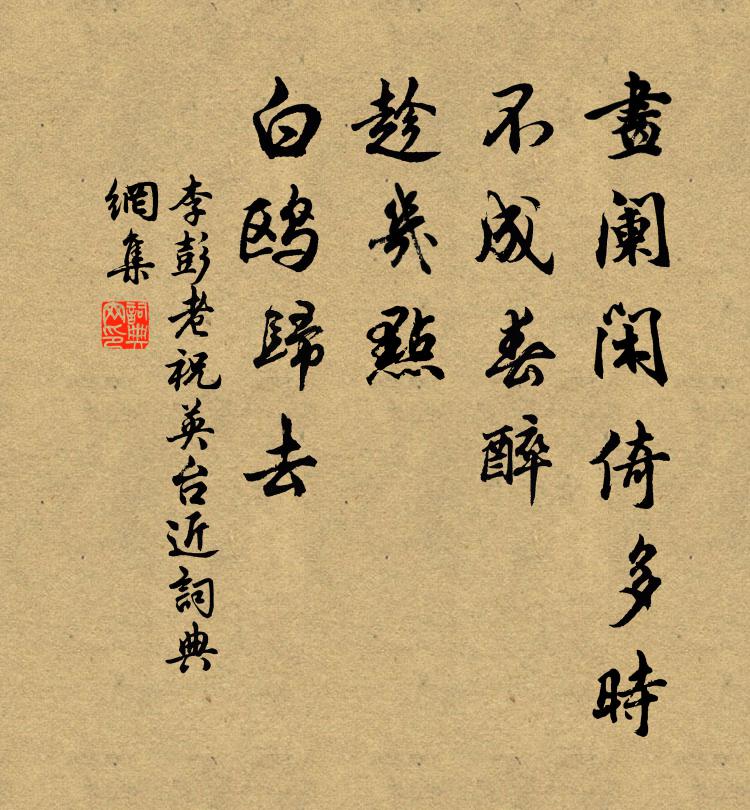 畫闌閑倚多時
不成春醉
趁幾點
白鸥歸去
李彭老祝英台近詞典
網集
詞典
网印